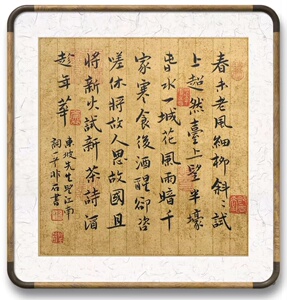 春未老風細柳斜斜試
上超然臺上望半壕
春水一城花風雨暗千
家寒食後酒醒卻咨
嗟休將故人思故國且
將新火試新茶詩酒
趁年華
東坡先生望江南
詞一首非石書